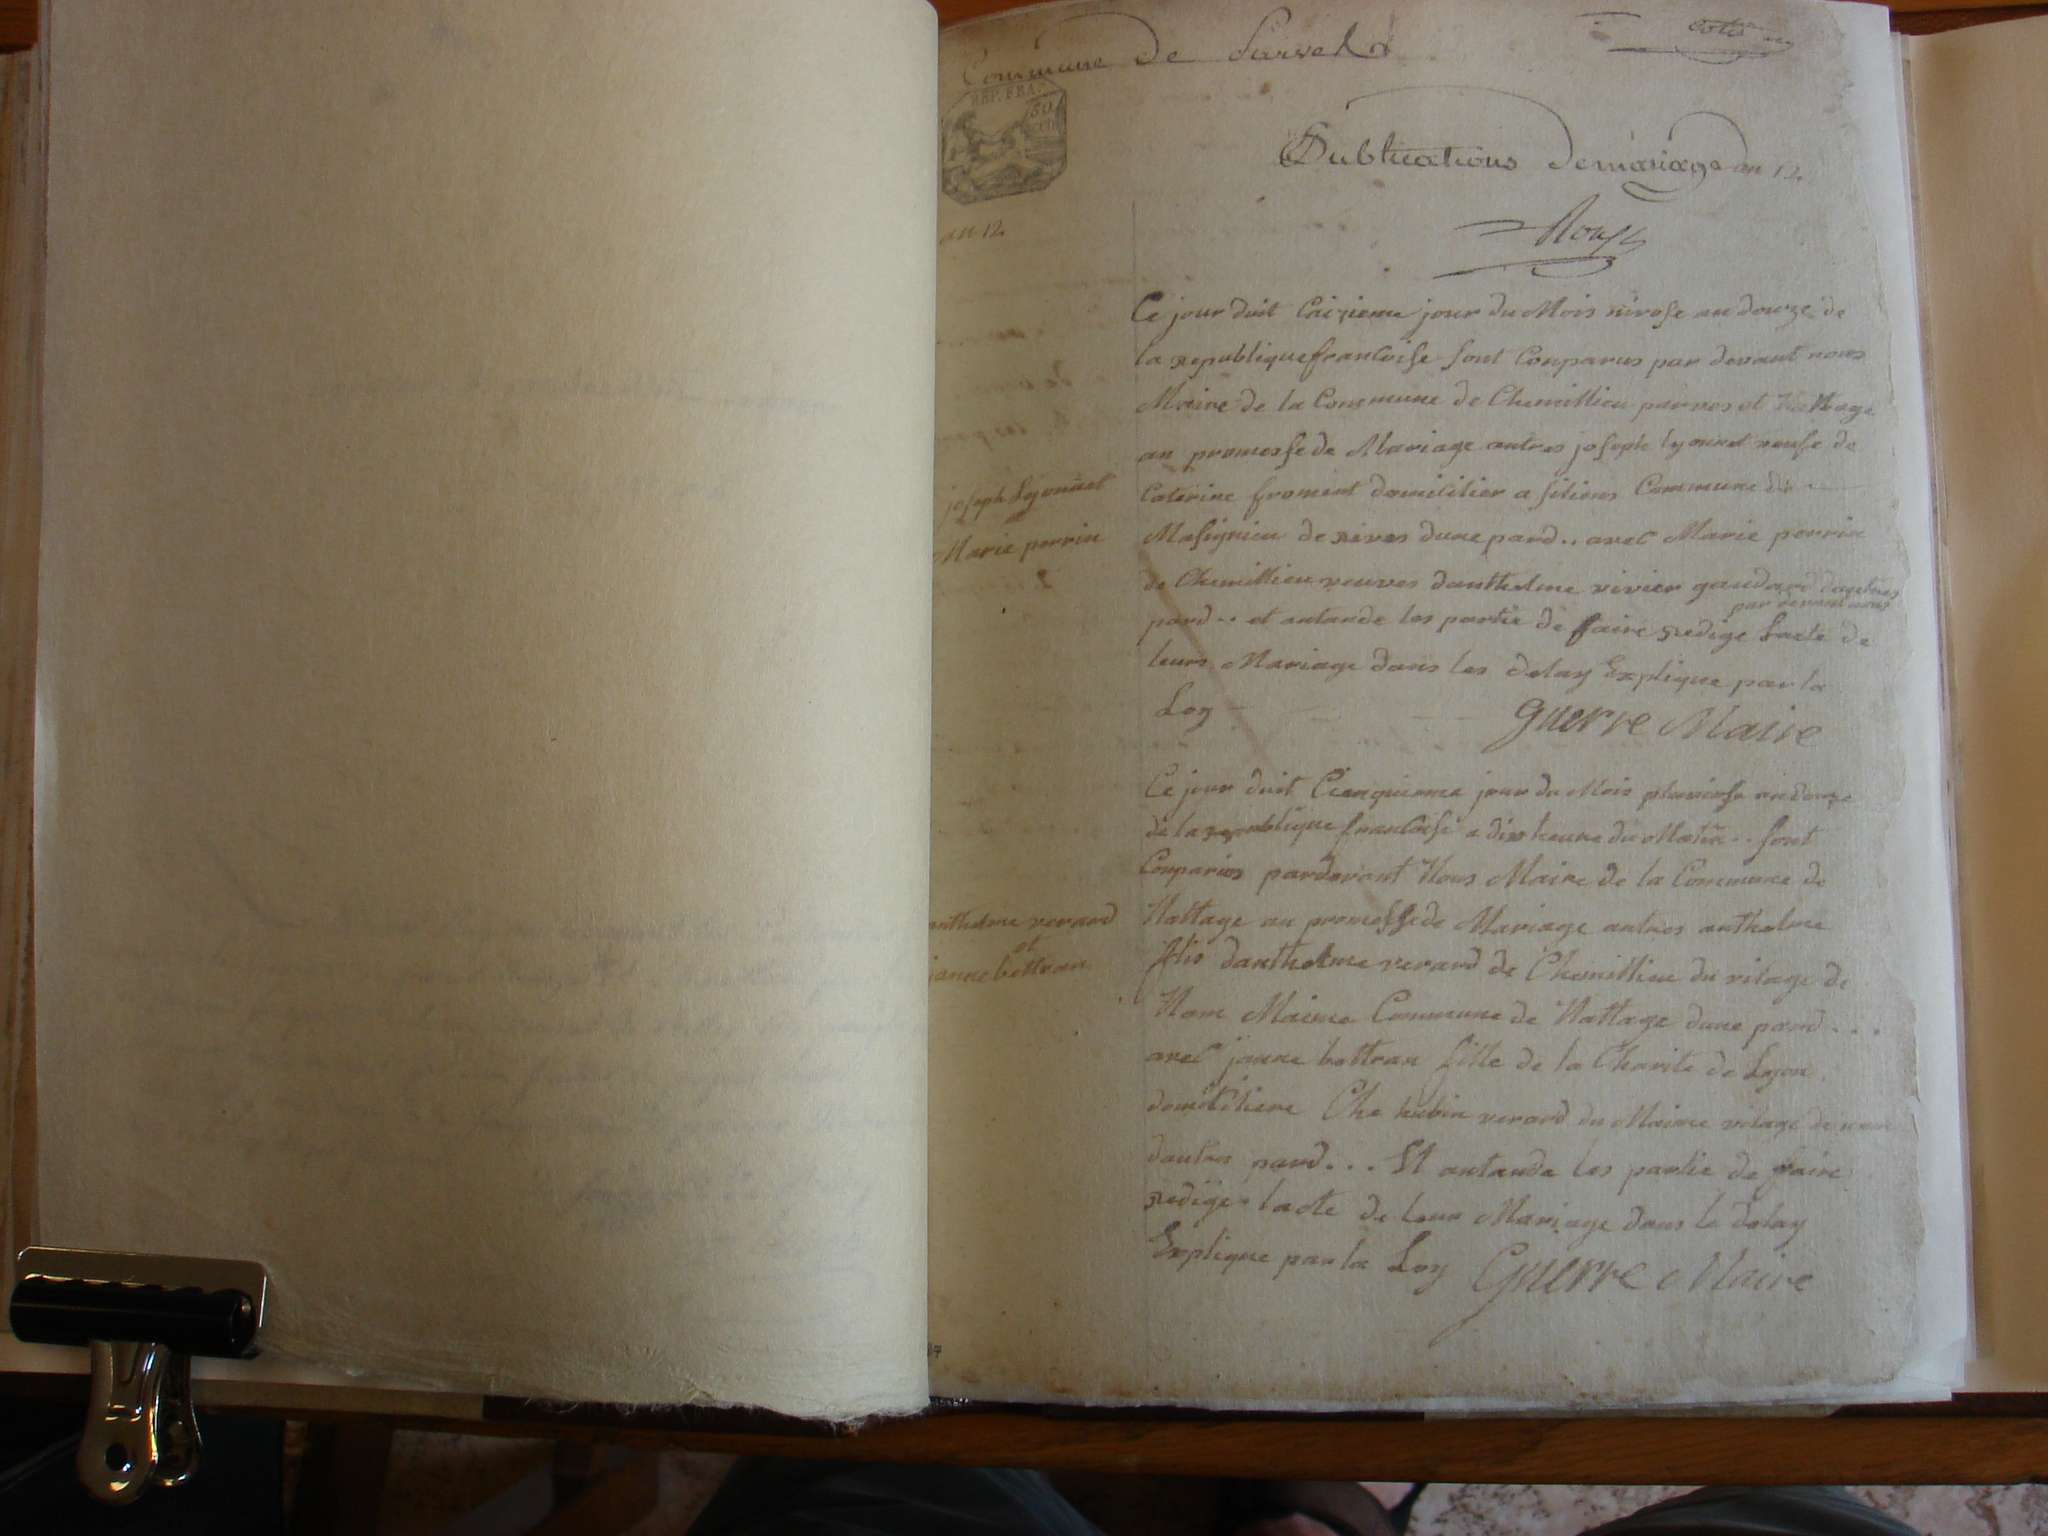 Commune de
REP. FRA.
50
Publications de mariage an 12.
an 12.
Ce jour duit Caizieme jour du Mois nivose an douze de
la republique francoise sont Conparus par devant nous
Maire de la Commune de Chemillieu parves et Nattage
an promesse de Mariage antres joseph lyonnet veufe de
joseph Lyonnet
Caterine froment domicilier a sitiens Commune de
Marie perrin
Masignieu de rives dune pard .. avec Marie perrin
de Chemillieu veuves danthelme vivier gaudard dautres
par devant nous
pard .. et antande les partie de faire redige lacte de
leurs Mariage dans les delay Explique par la
Loy
Guerre Maire
Ce jour duit Cienquieme jour du Mois pluviose an douze
de la republique francoise a dix heure du Matin .. sont
Conparus pardevant Nous Maire de la Commune de
anthelme verard
et
janne bettran
Nattage an promesse de Mariage antres anthelme
fils danthelme verard de Chemillieu du vilage de
Nam Maime Commune de Nattage dune pard ...
avec janne bettran fille de la Charite de Lyon
domiciliere Che hubin verard du Maime vilage de
dautres pard ... Et antande les partie de faire
redige lacte de leur Mariage dans le delay
Explique par la Loy Guerre Maire